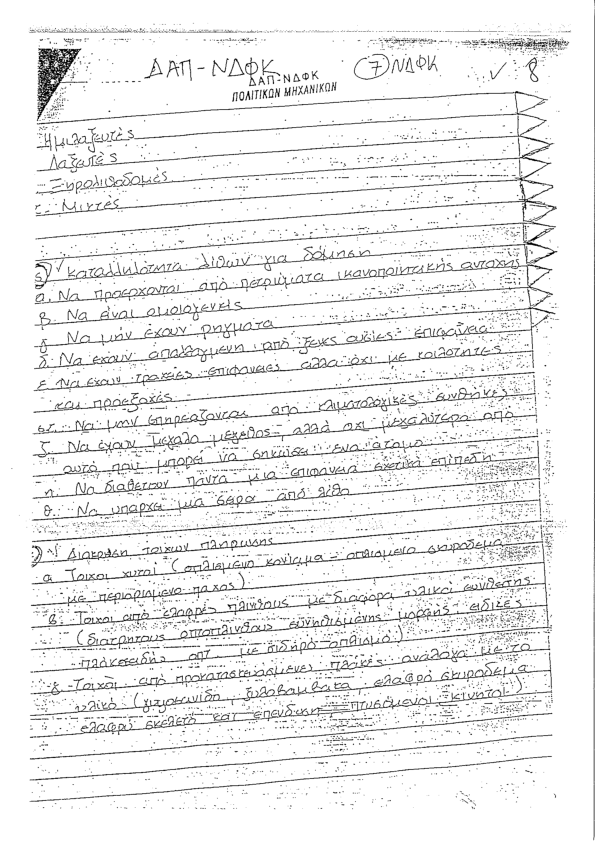 ΔΑΠ-ΝΔΦΚ
7 ΝΔΦΚ
8
ΔΑΠ-ΝΔΦΚ
ΠΟΛΙΤΙΚΩΝ ΜΗΧΑΝΙΚΩΝ
Ημιλαξευτές
Λαξευτές
Ξηρολιθοδομές
Μικτές
5) Καταλληλότητα λίθων για δόμηση
α. Να προέρχονται από πετρώματα ικανοποιητικής αντοχής
β. Να είναι ομοιογενείς
γ. Να μην έχουν ρήγματα
δ. Να έχουν απαλλαγμένη από ξένες ουσίες επιφάνεια
ε. Να έχουν τραχείες επιφάνειες αλλά όχι με κοιλότητες
και προεξοχές
στ. Να μην επηρεάζονται από κλιματολογικές συνθήκες
ζ. Να έχουν μεγάλο μέγεθος, αλλά όχι μεγαλύτερο από
αυτό που μπορεί να σηκώσει ένα άτομο
η. Να διαθέτουν πάντα μια επιφάνεια σχετικά επίπεδη
θ. Να υπάρχει μια σειρά από λίθο
Διάκριση τοίχων πλήρωσης
α. Τοίχοι χυτοί (οπλισμένο κονίαμα - οπλισμένο σκυρόδεμα
με περιορισμένο πάχος)
β. Τοίχοι από ελαφρές πλίνθους με διάφορα υλικά σύνθεσης
(διάτρητους οπτόπλινθους συνηθισμένης μορφής ειδικές
πλακοειδής οπτ. με σιδηρό οπλισμό)
γ. Τοίχοι από προκατασκευασμένες πλάκες ανάλογα με το
υλικό (γυψοσανίδα, ξυλοθάμβατα, ελαφρό σκυρόδεμα
ελαφρό σκελετό και επένδυση, πτυσόμενοι - κινητοί)